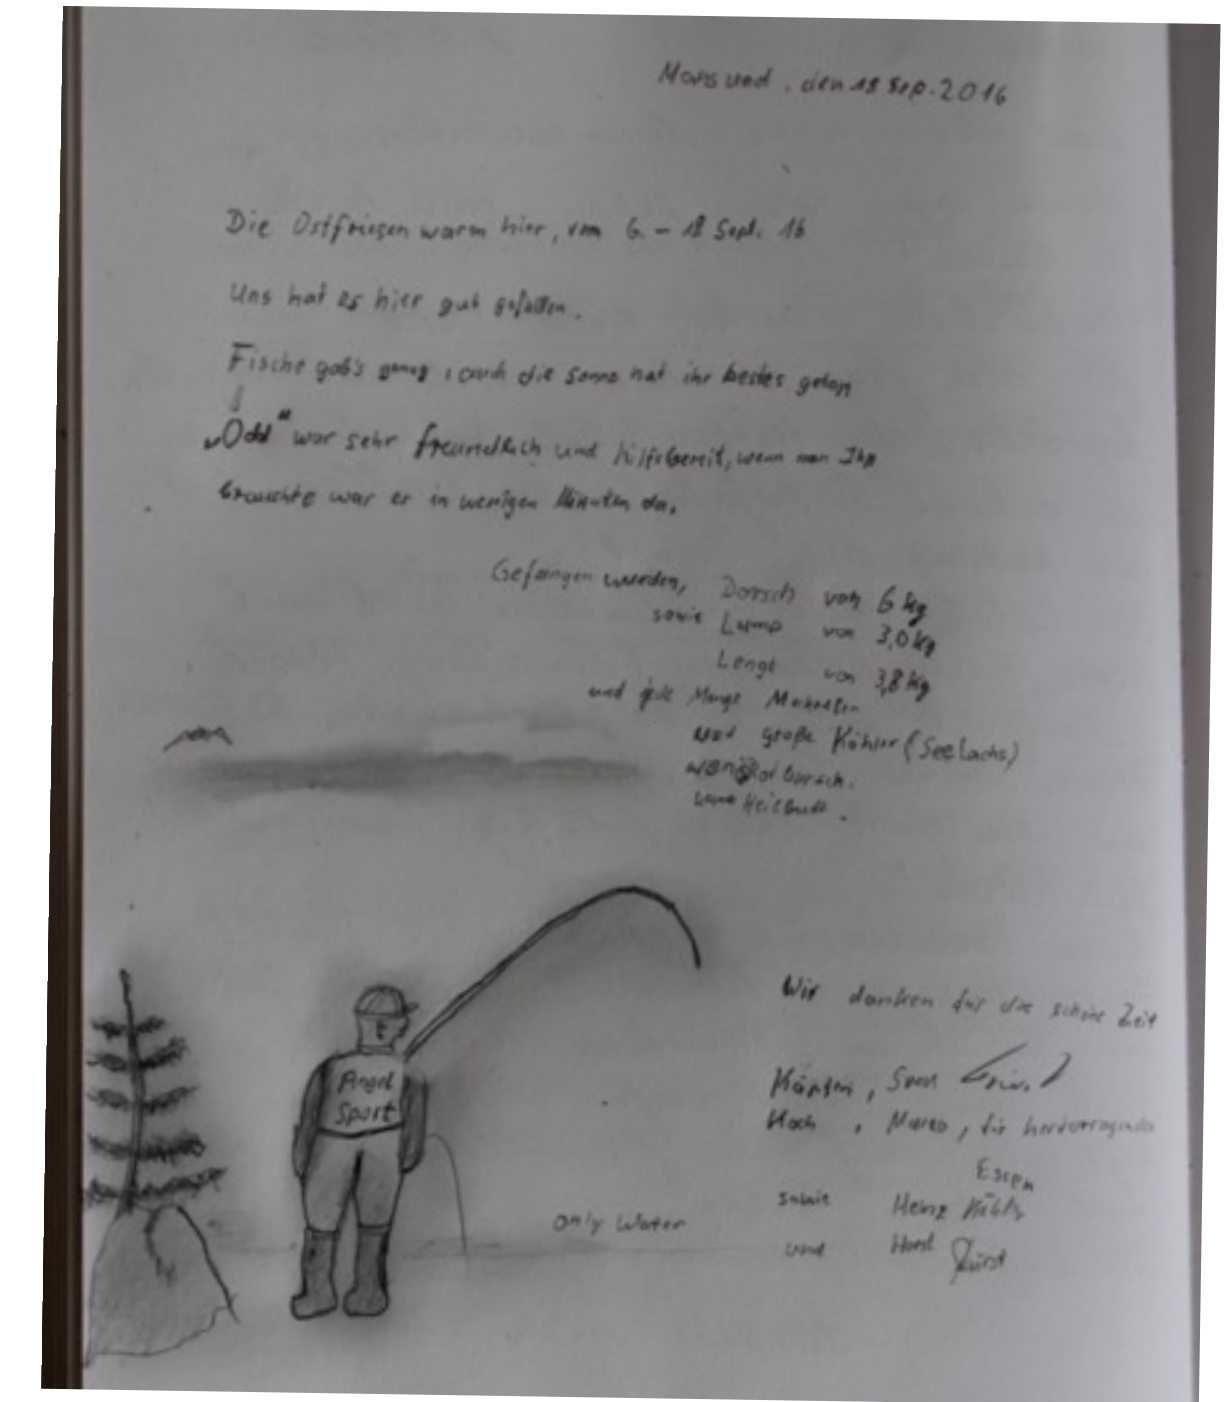 Mausund, den 18 Sep. 2016
Die Ostfriesen waren hier, vom 6. – 18 Sept. 16
Uns hat es hier gut gefallen.
Fische gab's genug, auch die Sonne hat ihr bestes getan
„Odd" war sehr freundlich und hilfsbereit, wenn man Ihn
brauchte war er in wenigen Minuten da.
Gefangen wurden, Dorsch von 6 kg
sowie Lump von 3,0 kg
Lenge von 3,8 kg
und Menge Makrelen
und große Köhler (Seelachs)
wenig Rotbarsch.
Heilbutt.
Wir danken für die schöne Zeit
Käpten, Sven
Koch, Marco, für hervorragendes
Essen
sowie Heinz
und Horst
Angel
Sport
only Water